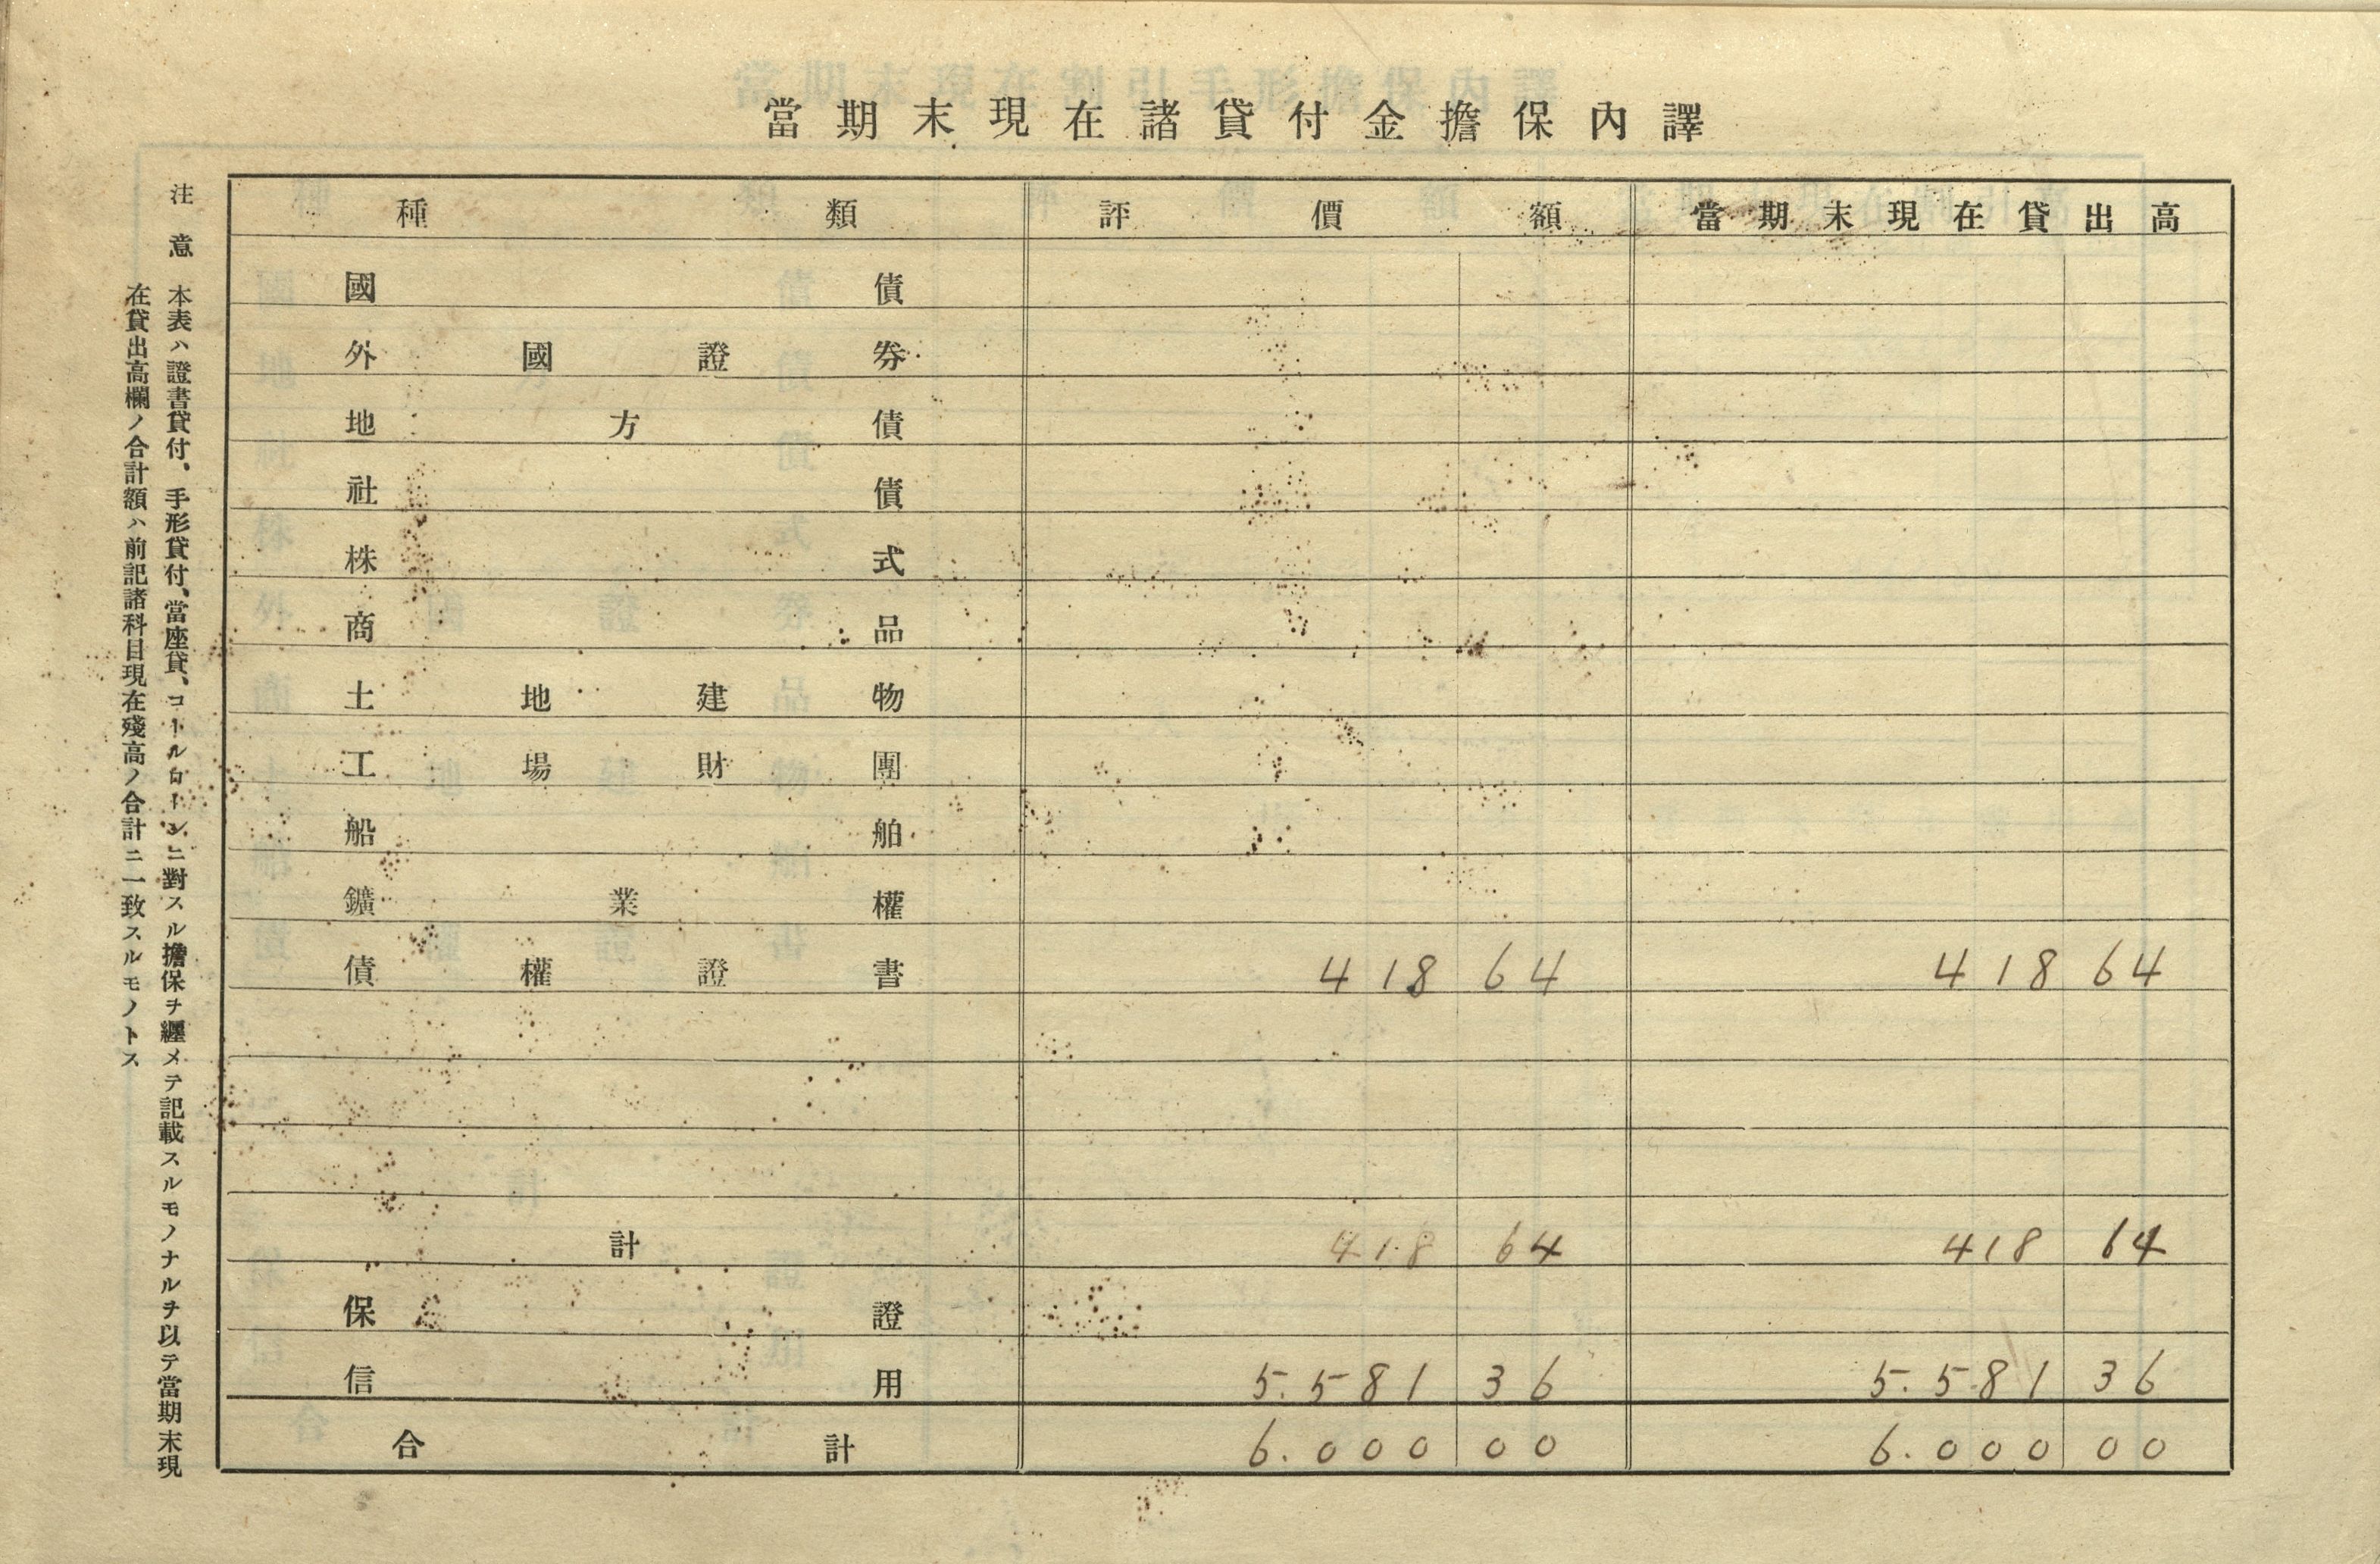 當期末現在諸貸付金擔保內譯
種類 評價額 當期末現在貸出高
國債
外國證券
地方債
社債
株式
商品
土地建物
工場財團
船舶
鑛業權
債權證書 418 64 418 64
計 418 64 418 64
保證
信用 5.581 36 5.581 36
合計 6.000 00 6.000 00
注意 本表ハ證書貸付、手形貸付、當座貸、コールローンニ對スル擔保ヲ纒メテ記載スルモノナルヲ以テ當期末現
在貸出高欄ノ合計額ハ前記諸科目現在殘高ノ合計ニ一致スルモノトス